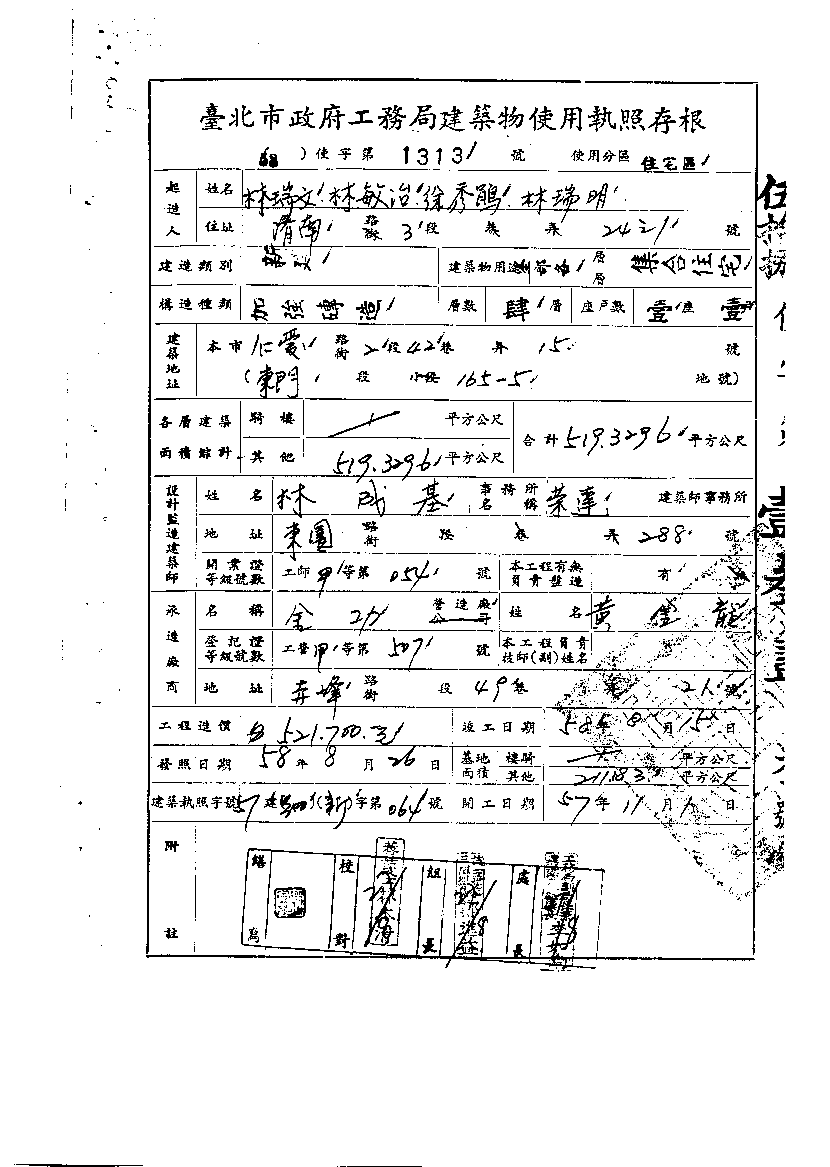 臺北市政府工務局建築物使用執照存根
)使字第 1313 號 使用分區 住宅區
起造人 姓名 林瑞文 林敏治 徐秀鵑 林瑞明
住址 濟南 路街 3 段 巷 弄 號
建造類別 新 建築物用途 層層 集合住宅
構造種類 加強磚造 層數 肆 層 座戶數 壹 座 壹
建築地址 本市 仁愛 路街 2 段 42 巷 弄 15 號
(東門 段 小段 165-5 地號)
各層建築面積總計 騎樓 平方公尺 合計 519.3296 平方公尺
其他 519.3296 平方公尺
設計監造建築師 姓名 林成基 事務所名稱 榮達 建築師事務所
地址 東園 路街 段 巷 弄 288 號
開業證等級號數 工師 甲 等第 054 號 本工程有無負責監造 有
承造廠商 名稱 金 營造廠公司 姓名 黃金龍
登記證等級號數 工營 甲 等第 507 號 本工程負責技師(副)姓名
地址 赤峰 路街 段 49 巷 弄 21 號
工程造價 521.700.元 竣工日期 58年 8 月 15 日
發照日期 58 年 8 月 26 日 基地面積 樓騎 平方公尺
其他 平方公尺
建築執照字號 57 建 字第 064 號 開工日期 57 年 11 月 1 日
附註
繕寫 校對 組長 處長